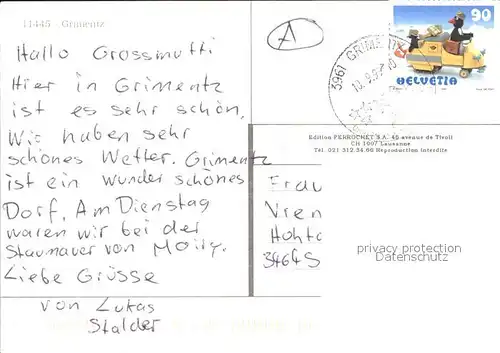 11445 - Grimentz
A
Hallo Grossmutti
Hier in Grimentz
ist es sehr schön.
Wir haben sehr
schönes Wetter. Grimentz
ist ein wunderschönes
Dorf. Am Dienstag
waren wir bei der
Staumauer von Moiry.
Liebe Grüsse
von Lukas
Stalder
3961 GRIMENTZ
90
HELVETIA
Edition PERROCHET S.A. 46 avenue de Tivoli
CH 1007 Lausanne
Tél. 021 312.34.60 Reproduction interdite
Frau
Vren
Hohta
3464 S
privacy protection
Datenschutz